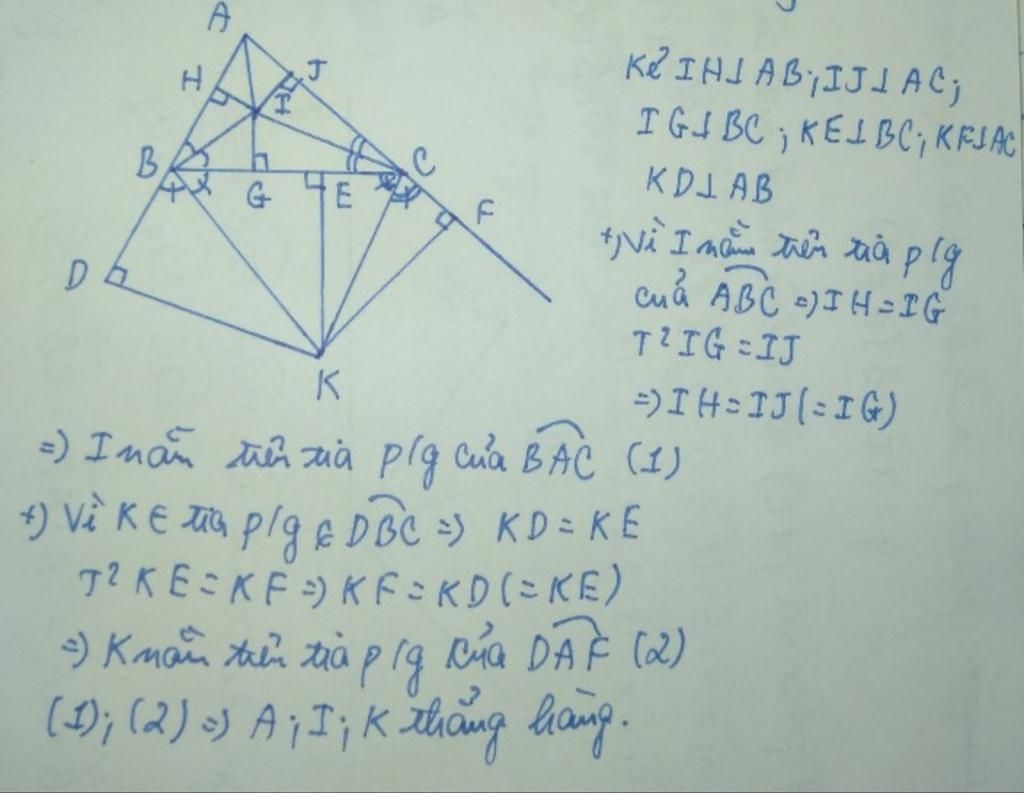 A
H
J
I
B
G
E
C
F
D
K
Kẻ IH⊥AB; IJ⊥AC;
IG⊥BC; KE⊥BC; KF⊥AC
KD⊥AB
+, Vì I nằm trên tia p/g
của ABC => IH = IG
T² IG = IJ
=> IH = IJ (= IG)
=) I nằm trên tia p/g của BAC (1)
+) Vì K ∈ tia p/g ∈ DBC => KD = KE
T² KE = KF => KF = KD (= KE)
=) K nằm trên tia p/g của DAF (2)
(1); (2) => A; I; K thẳng hàng.